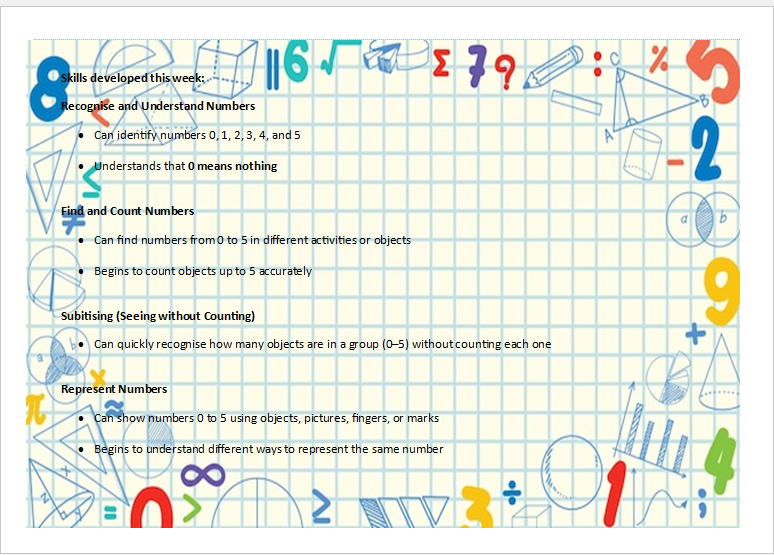 Skills developed this week:
Recognise and Understand Numbers
• Can identify numbers 0, 1, 2, 3, 4, and 5
• Understands that 0 means nothing
Find and Count Numbers
• Can find numbers from 0 to 5 in different activities or objects
• Begins to count objects up to 5 accurately
Subitising (Seeing without Counting)
• Can quickly recognise how many objects are in a group (0–5) without counting each one
Represent Numbers
• Can show numbers 0 to 5 using objects, pictures, fingers, or marks
• Begins to understand different ways to represent the same number